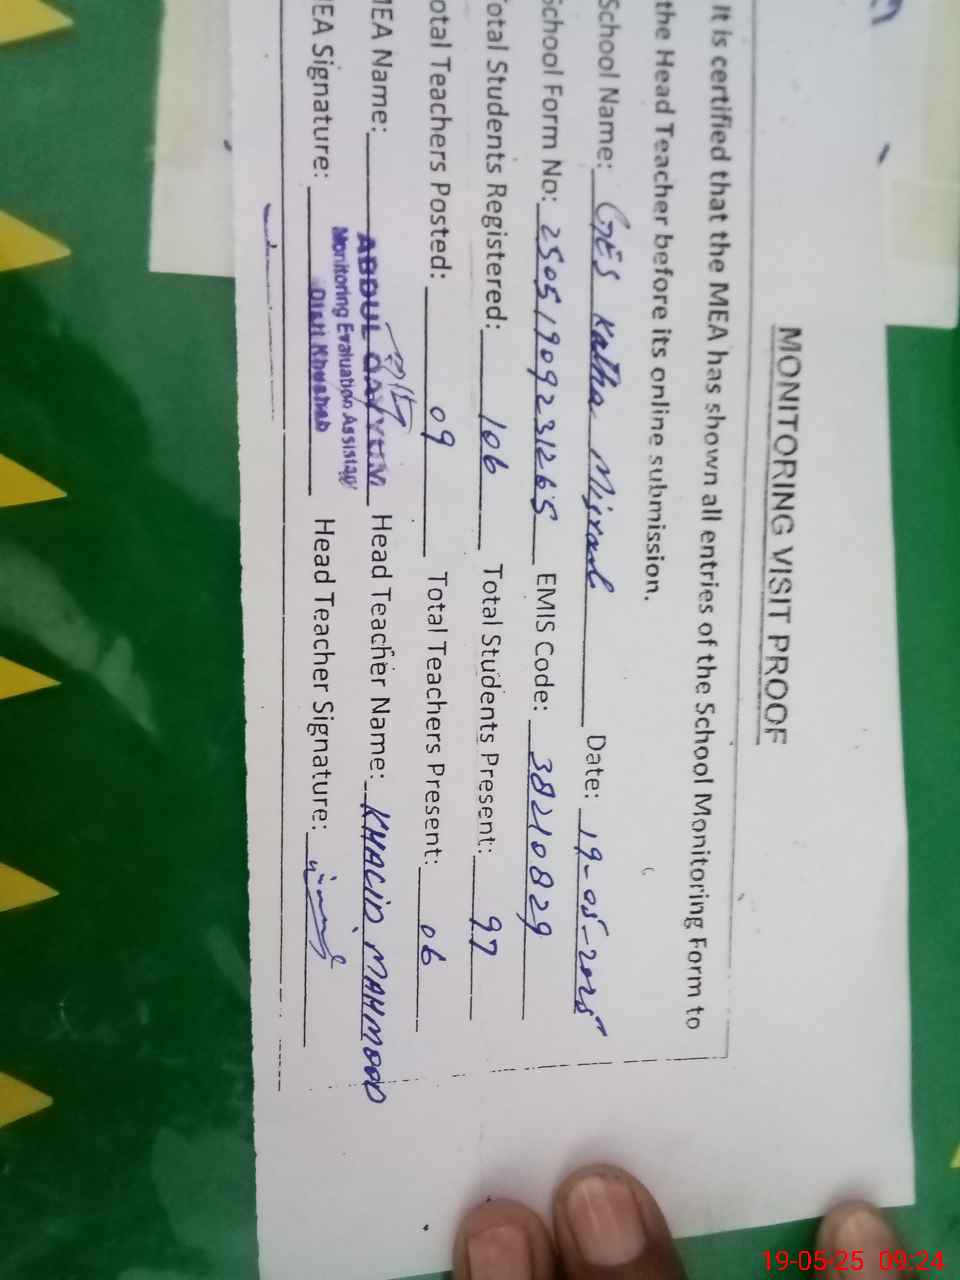 MONITORING VISIT PROOF
It is certified that the MEA has shown all entries of the School Monitoring Form to
the Head Teacher before its online submission.
School Name: GES Katha Misral Date: 19-05-2025
School Form No: 25051909231265 EMIS Code: 38210829
Total Students Registered: 106 Total Students Present: 97
otal Teachers Posted: 09 Total Teachers Present: 06
MEA Name: ABDUL QAYYUM Head Teacher Name: KHALID MAHMOOD
Monitoring Evaluation Assistant
Distt Khushab
MEA Signature: Head Teacher Signature:
19-05-25 09:24